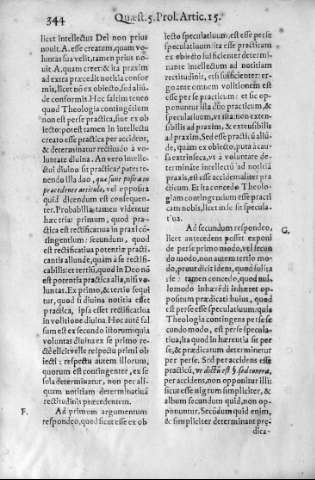 344
Quæst. 5. Prol. Artic. 15.
licet intellectus Dei non prius
nouit. A. esse creatum, quam vo-
luntas sua velit, tamen prius no-
uit A, quam creet: & ita praxim
ad extra præcedit notitia confor
mis, licet nō ex obiecto, sed aliū
de conformis. Hoc saltim teneo
quod Theologia contingētium
non est per se practica, siue ex ob
iecto: potest tamen in intellectu
creato esse practica per accidens,
& determinatur rectitudo à vo-
luntate diuina. An vero intelle-
ctui diuino sit practica? patet te-
nendo illa duo, quæ sunt posita in
præcedente articulo, vel opposita
quid dicendum est consequen-
ter. Probabilia tamen videntur
hæc tria: primum, quod pra-
ctica est rectificatiua in praxi cō-
tingentium: secundum, quod
est rectificatiua potentiæ practi-
cantis aliunde, quam à se rectifi-
cabilis: et tertiū, quod in Deo nō
est potentia practica alia, nisi vo-
luntas. Ex primo, & tertio sequi
tur, quod si diuina notitia esset
practica, ipsa esset rectificatiua
in volitione diuina. Hoc autē fal
sum est ex secundo illorum: quia
voluntas diuina ex se primo re-
ctè elicit velle respectu primi ob
iecti: respectu autem illorum,
quorum est contingenter, ex se
sola determinatur, non per ali-
quam notitiam determinatiuā
rectitudinis præcedentem.
F. Ad primum argumentum
respondeo, quod sicut esse ex ob
iecto speculatiuum, est esse per se
speculatiuum ita esse practicum
ex obiecto includendo ad intellectum
rectitudinis, etsi sufficienter: er-
go ante omnem volitionem est
esse per se practicum: et sic op-
ponuntur ista duo practicum, &
speculatiuum, vt ista: non exten-
sibilis ad praxim, & extensibilis
ad praxim. Sed esse practicū aliū-
de, quàm ex obiecto, puta à cau-
sa extrinseca, vt à voluntate de-
terminante intellectū ad notitiā
praxis, est esse accidentaliter pra
cticum. Et ita concedo Theolo-
giam contingentium esse practi
cam nobis, licet in se sit specula-
tiua.
G. Ad secundum respondeo,
licet antecedens possit exponi
de per se primo modo, vel secun
do modo, non autem tertio mo-
do, prout dicit idem, quod solita
riè: tamen concedo, quod nul-
lo modo inhæreret
oppositum prædicati huius, quod
est per se esse speculatiuum, quia
Theologia contingens per se se
cundo modo, est per se specula-
tiua, ita quod in hæret si per se,
& prædicatum determinetur
per se. Sed per accidens esse
practicū, vt dictū est § sed contra,
per accidens, non opponitur illi:
sicut esse nigrum simpliciter, &
album secundum quid, non op-
ponuntur. Secundùm quid enim,
& simpliciter determinant præ-
dica-